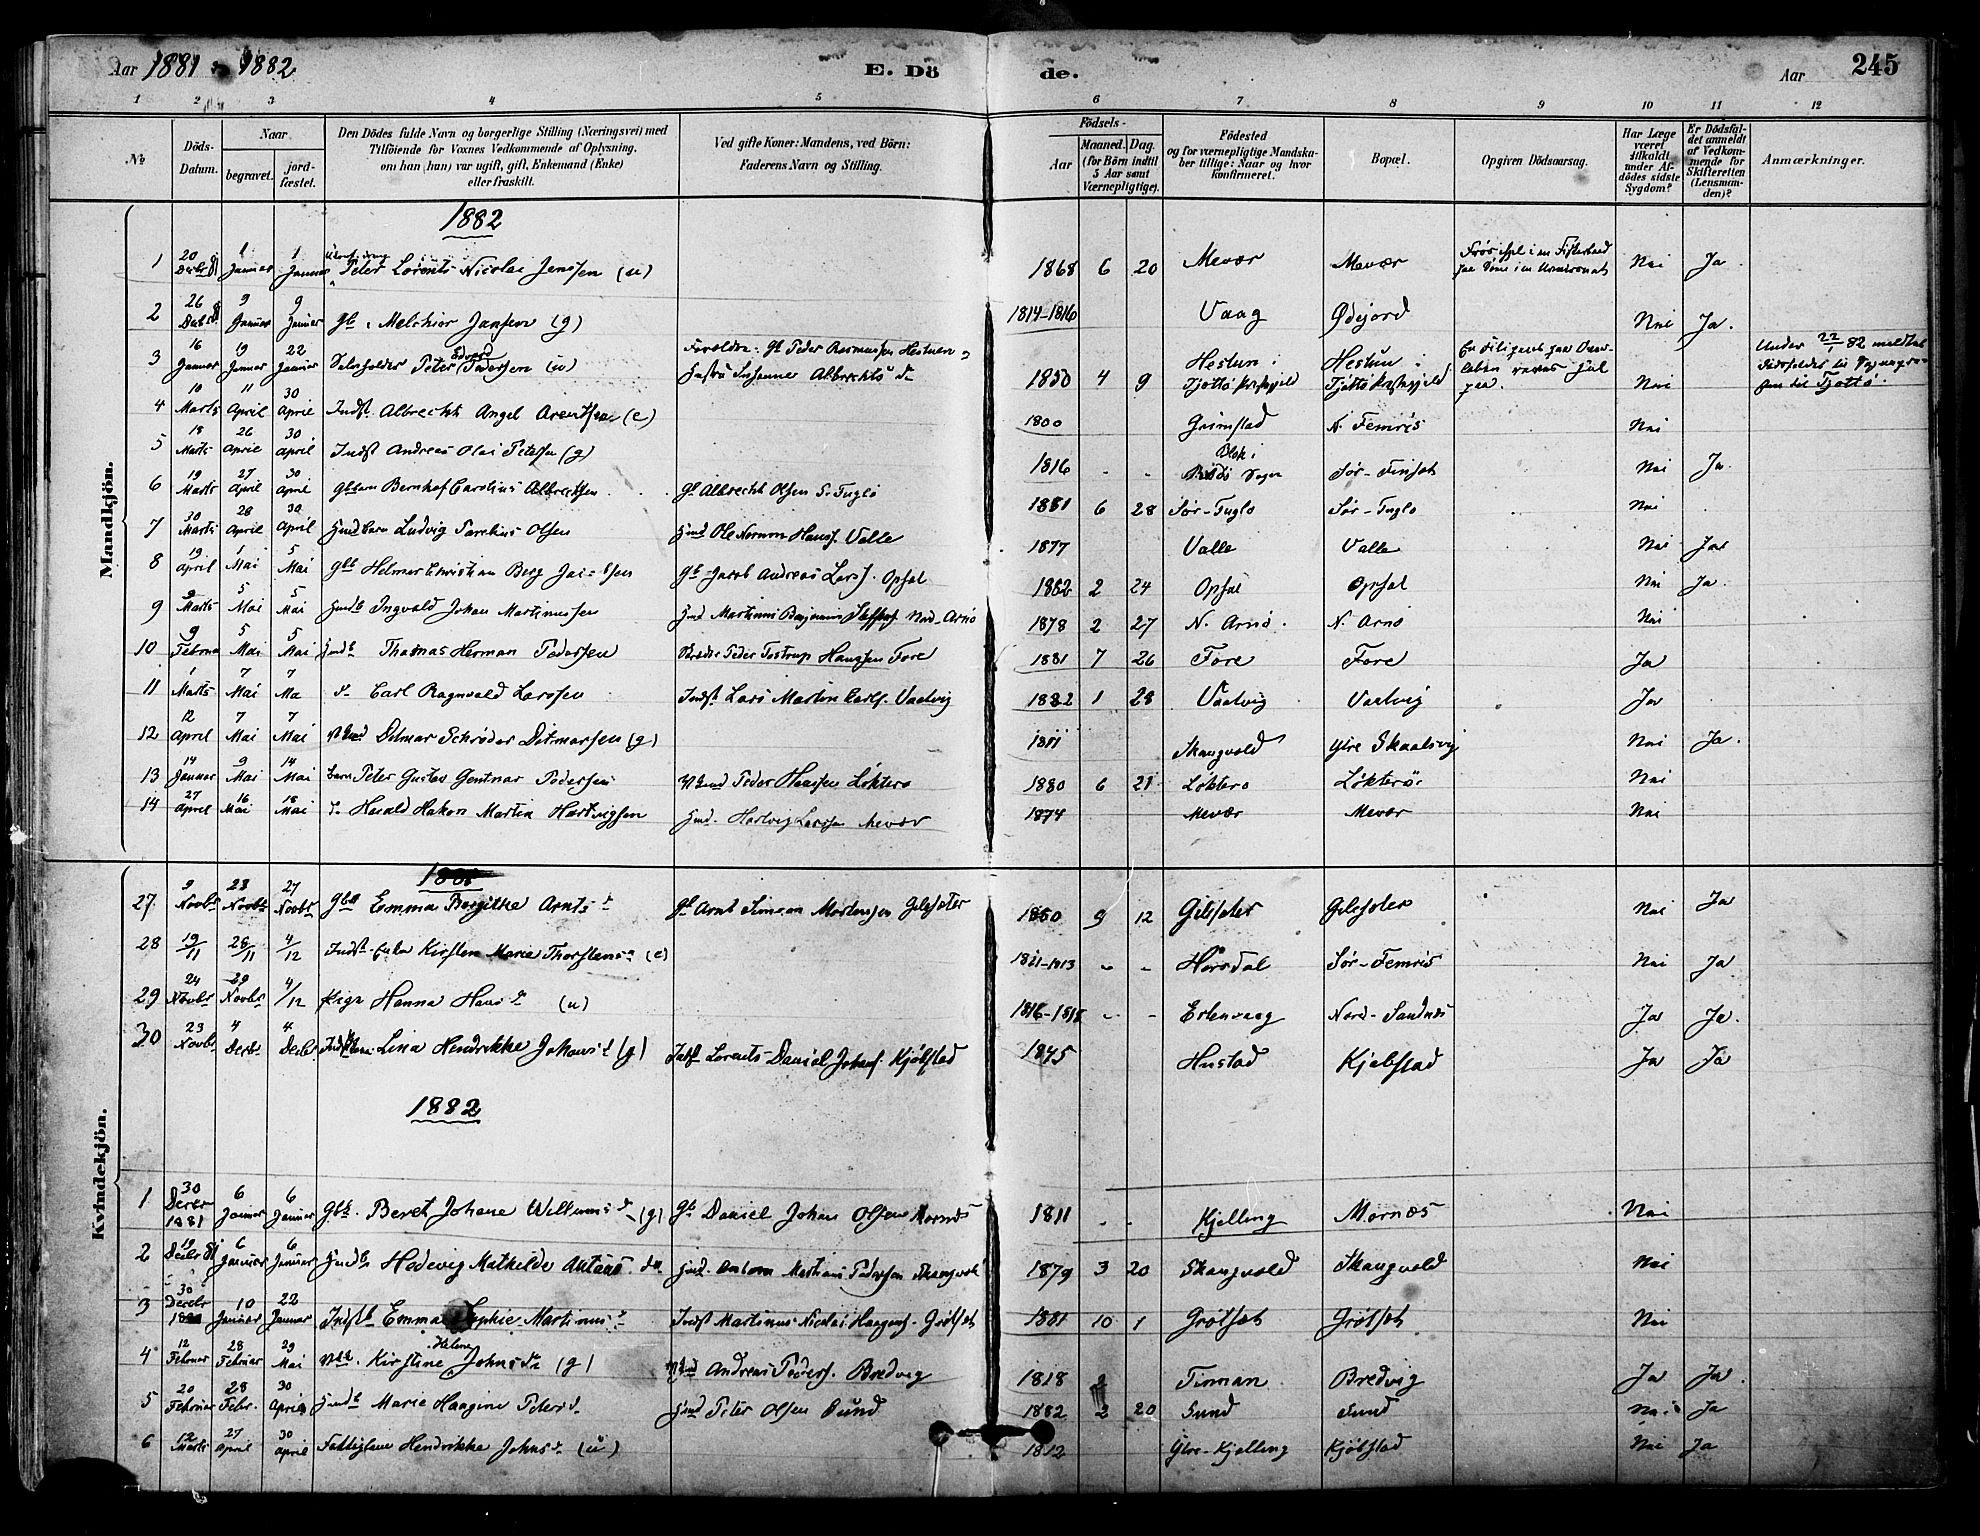 Aar 1881 - 1882
E. Dö
de.
Aar
245
1 2 3 4 5 6 7 8 9 10 11 12
№
Döds-Datum.
Naar
begravet.
jord-fæstet.
Den Dödes fulde Navn og borgerlige Stilling (Næringsvei) med
Tilföiende for Voxnes Vedkommende af Oplysning,
om han (hun) var ugift, gift, Enkemand (Enke)
eller fraskilt.
Ved gifte Koner: Mandens, ved Börn:
Faderens Navn og Stilling.
Födsels-
Aar
Maaned. Dag.
(for Börn indtil
5 Aar samt
Værnepligtige).
Födested
og for værnepligtige Mandska-
ber tillige: Naar og hvor
konfirmeret.
Bopæl.
Opgiven Dödsaarsag.
Har Læge
været
tilkaldt
under Af-
dödes sidste
Sygdom?
Er Dödsfal-
det anmeldt
af Vedkom-
mende for
Skifteretten
(Lensman-
den)?
Anmærkninger.
Mandkjön.
1882
1 20 Decbr 81 1 Januar 1 Januar Peter Lorents Nicolai Jenssen (u) 1868 6 20 Mevær Mevær Nei Ja
2 26 Decbr 81 9 Januar 9 Januar Gb. Melchior Jansen (g) 1814-1816 Vaag Ødejord Nei Ja.
3 16 Januar 19 Januar 22 Januar Peter Edvard Pedersen (u) Forældre: Gb Peder Rasmussen Hestun o Hustru Susanne Albrechts dr 1850 4 9 Hestun i Tjøttø Præstegjeld Hestun i Tjøttø Præstegjeld Nei Under 22/1 82 meldt
4 10 Marts 11 April 30 April Indst. Albrecht Angel Arentsen (e) 1800 Grimstad N. Femris Nei
5 18 Marts 26 April 30 April Indst Andreas Olai Petersen (g) 1816 - - Bodø Sogn Sør-Finset Nei Ja
6 19 Marts 27 April 30 April Gbbarn Bernhof Carolius Albrechtsen Gb Albrecht Olsen S. Fuglø 1881 6 28 Sør-Fuglø Sør-Fuglø Nei
7 30 Marts 28 April 30 April Hmdbarn Ludvig Parelius Olsen Hmd Ole Normon Hanss. Valle 1877 Valle Valle Nei Ja
8 19 April 1 Mai 5 Mai Gbb Helmer Christian Berg Jacobsen Gb Jacob Andreas Larss. Opsal 1862 2 24 Opsal Opsal Nei Ja.
9 9 Marts 5 Mai 5 Mai Hmdb Ingvald Johan Martinussen Hmd Martinus Benjamin Steffens. Nord-Arnø 1878 2 27 N. Arnø N. Arnø Nei
10 9 Februar 5 Mai 5 Mai Hmdb Thomas Herman Pedersen Peder Tostrup Hanssen Fore 1881 7 26 Fore Fore Ja
11 1 Marts 7 Mai 7 Mai dr Carl Ragnvald Larssen Indst. Lars Martin Carls. Vaatvig 1882 1 28 Vaatvig Vaatvig Ja
12 12 April 7 Mai 7 Mai Ditmar Schrøder Ditmarsen (g) 1811 Skaugvold Ytre Skaalsvig Nei Ja.
13 14 Januar 9 Mai 14 Mai barn Peter Gustav Gentner Pedersen Peder Hanssen Løkterø 1880 6 21 Løkterø Løkterø Nei
14 27 April 16 Mai 18 Mai Harald Hakon Martin Hartvigsen Hmd. Hartvig Larssen Mevær 1874 Mevær Mevær Nei
Kvindekjön.
1881
27. 9 Novbr 23 Novbr 27 Novbr Gbb Emma Bergitha Arnts dr Gb Arnt Simon Mortensen Gilsæter 1880 9 12 Gilsæter Gilsæter Nei Ja
28 19/11 26/11 4/12 Indst. Enke Kirsten Marie Thorstens dr (e) 1811-1813 - - Horsdal Sør-Femris Nei Ja
29 24 Novbr 29 Novbr 4/12 Pige Hanna Hans dr (u) 1816-1818 - - Erlenvaag Nord-Sandnes Ja Ja.
30 23 Novbr 4 Decbr 4 Decbr Lina Hendrikke Johans dr (g) Indst Lorents Daniel Johans. Kjøbstad 1845 Hustad Kjøbstad Ja Ja
1882
1 30 Decbr 1881 6 Januar 6 Januar Gbk. Beret Johane Willums dr (g) Gb Daniel Johan Olsen Mornes 1811 - - Kjelling Mornes Nei
2 19 Decbr 81 6 Januar 6 Januar Hmdb Hedevig Mathilde Antons dr Hmd. Anton Martinus Pedersen Skaugvold 1879 3 20 Skaugvold Skaugvold Nei
3 30 Decbr 10 Januar 22 Januar Indstb Emma Sophie Martinus dr Indst Martinus Nicolai Haagens. Grøtset 1881 10 1 Grøtset Grøtset Nei
4 12 Februar 28 Februar 29 Mai Kirstine Helene Johns dr (g) Andreas Peders. Bredvig 1818 Finman Bredvig Ja Ja.
5 20 Februar 28 Febr. 30 April Hmdb Marie Haagine Peters dr Hmd Peter Olsen Sund 1882 2 20 Sund Sund Nei Ja
6 12 Marts 27 April 30 April Fattiglem Hendrikke Johns dr (u) 1812 Ytre-Kjelling Kjøbstad Nei Ja